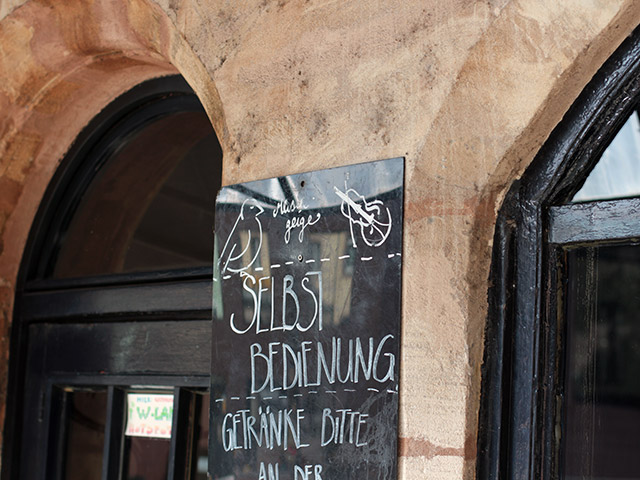 Meisengeige
SELBST
BEDIENUNG
GETRÄNKE BITTE
AN DER
W-LAN
HOTSPOT